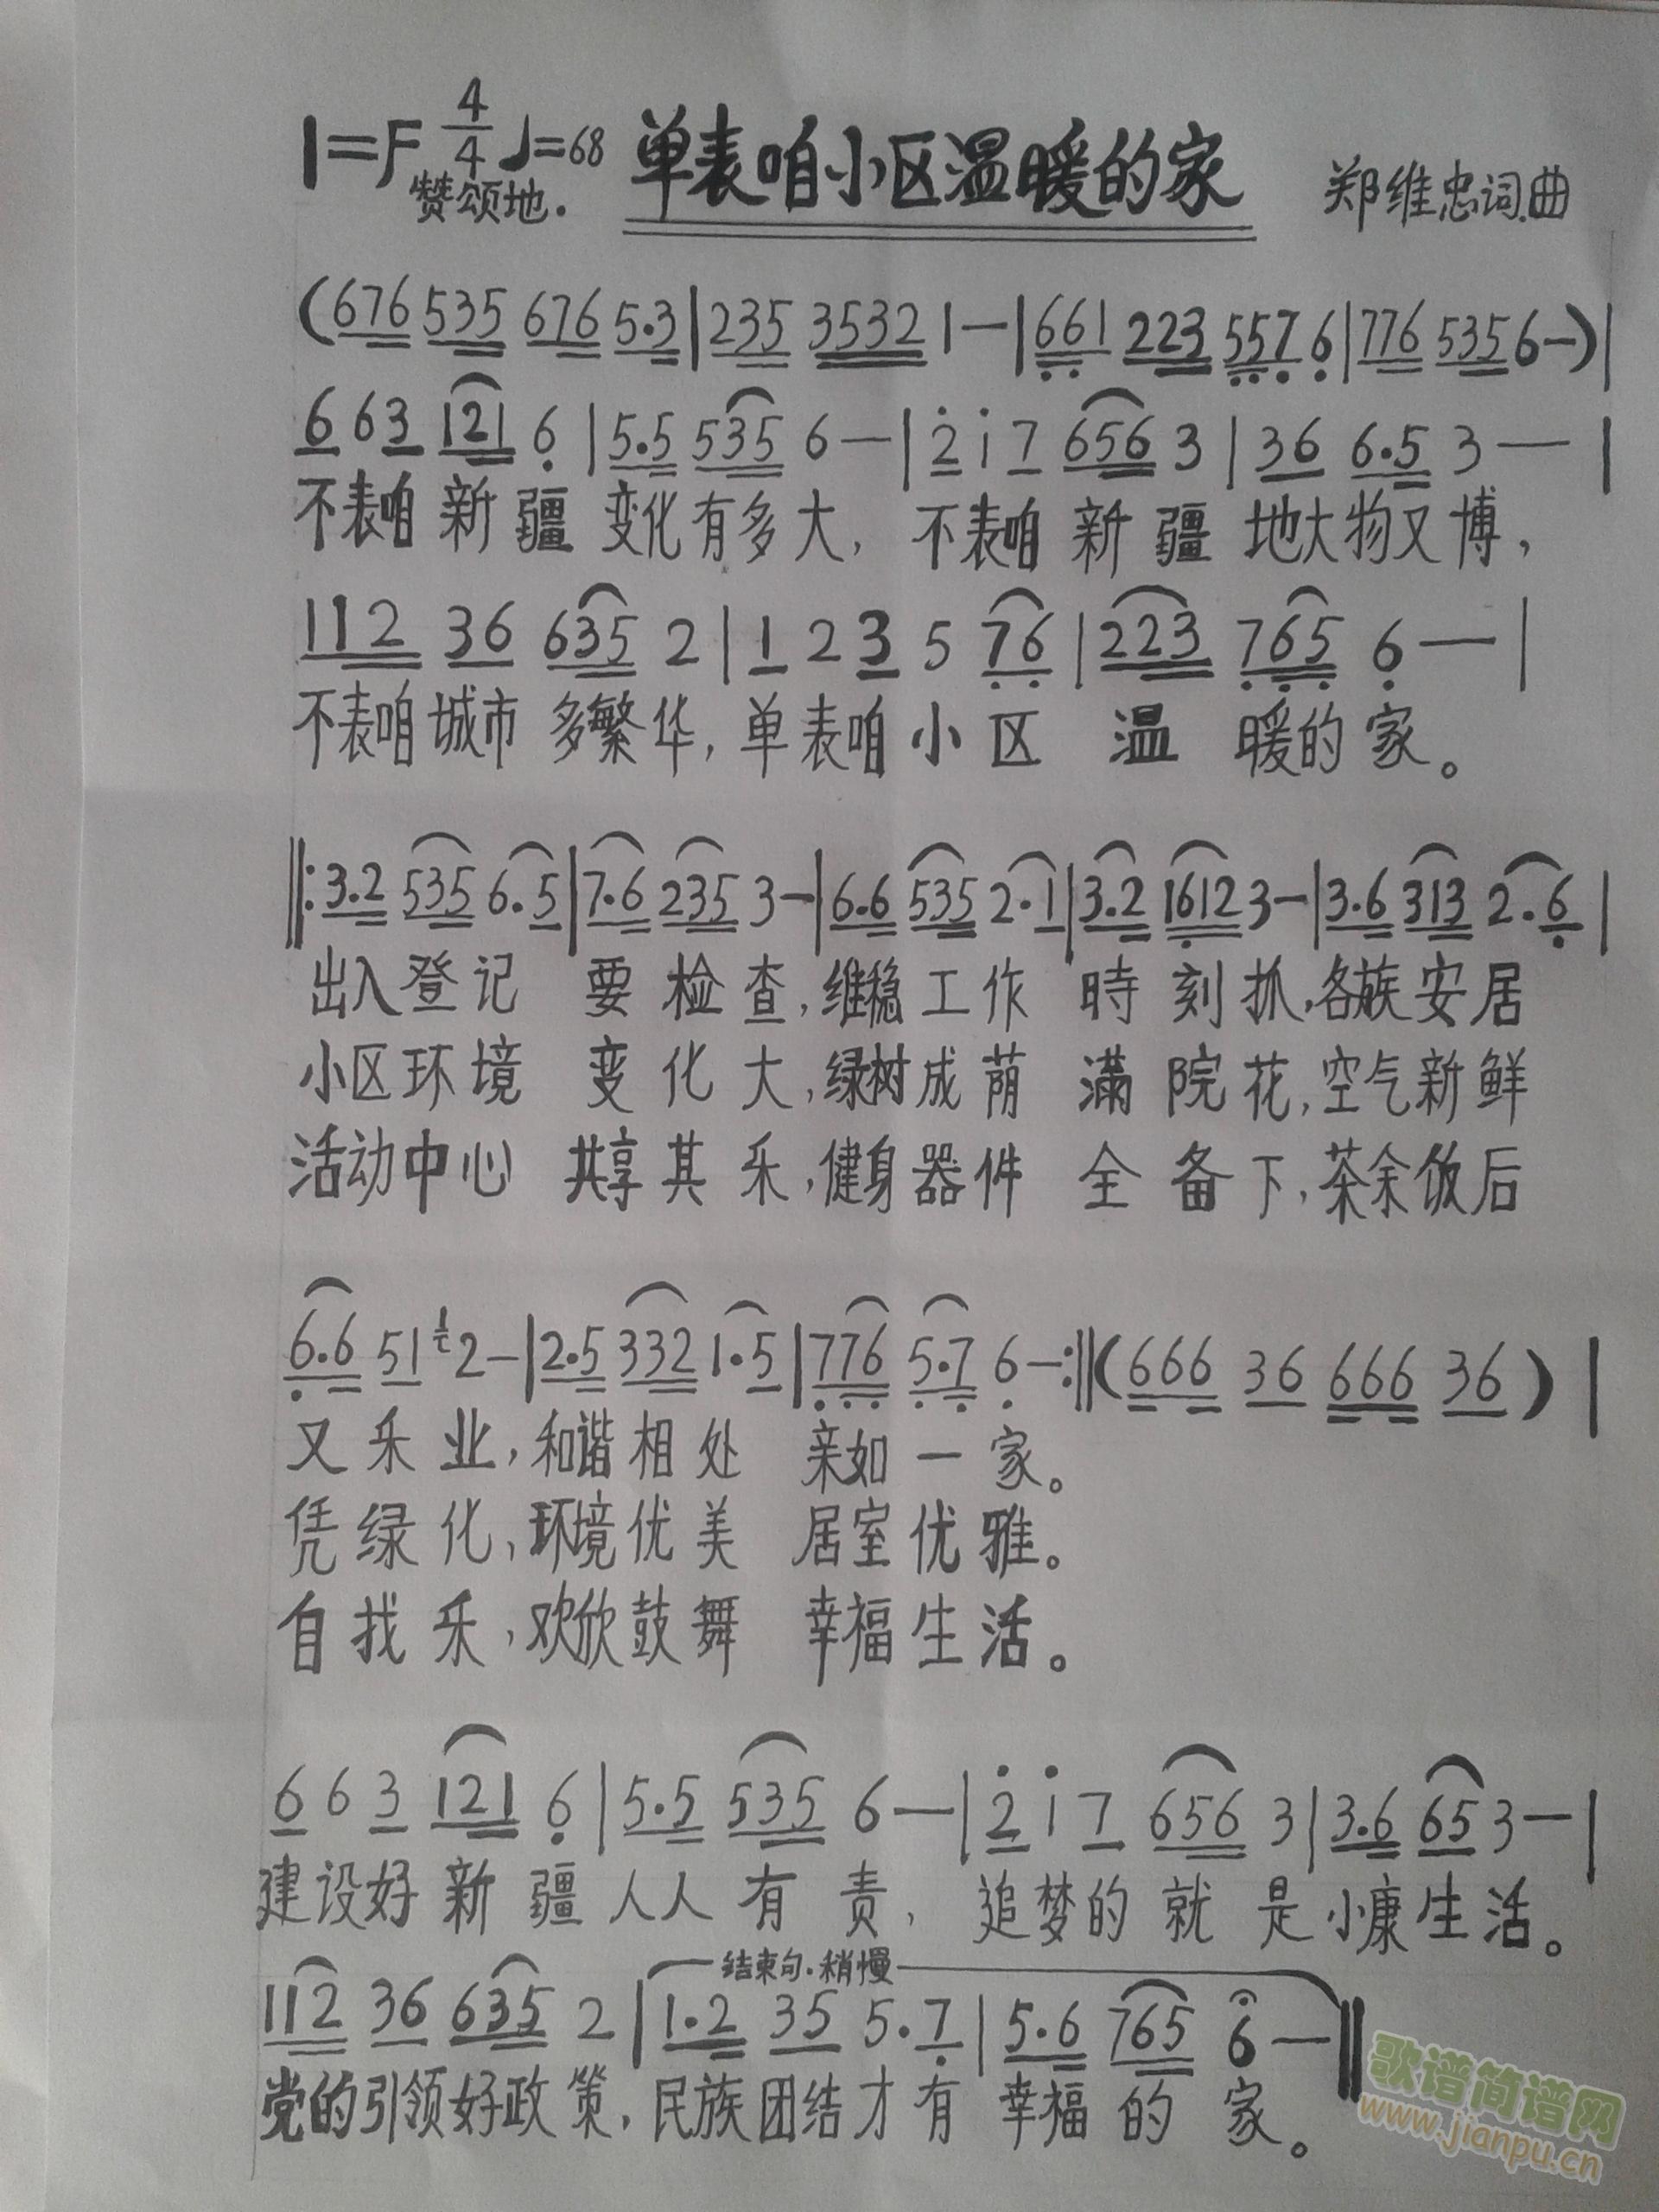 1=F 4/4 ♩=68 单表咱小区温暖的家
赞颂地. 郑维忠词.曲
(676 535 676 5.3|235 3532 1—|661 223 557 6|776 535 6—)|
6 6 3 121 6|5.5 535 6—|2 1 7 656 3|36 6.5 3—|
不表咱新疆变化有多大, 不表咱新疆地大物又博,
112 36 635 2|1 2 3 5 76|223 765 6—|
不表咱城市多繁华,单表咱小区温暖的家。
‖:3.2 535 6.5|7.6 235 3—|6.6 535 2.1|3.2 1612 3—|3.6 313 2.6|
出入登记要检查,维稳工作時刻抓,各族安居
小区环境变化大,绿树成荫满院花,空气新鲜
活动中心共享其乐,健身器件全备下,茶余饭后
6.6 51 12—|2.5 332 1.5|776 5.7 6—:‖(666 36 666 36)|
又乐业,和谐相处亲如一家。
凭绿化,环境优美居室优雅。
自找乐,欢欣鼓舞幸福生活。
6 6 3 121 6|5.5 535 6—|2 1 7 656 3|3.6 65 3—|
建设好新疆人人有责, 追梦的就是小康生活。
结束句.稍慢
112 36 635 2|1.2 35 5.7|5.6 765 6—‖
党的引领好政策,民族团结才有幸福的家。
歌谱简谱网
www.jianpu.cn